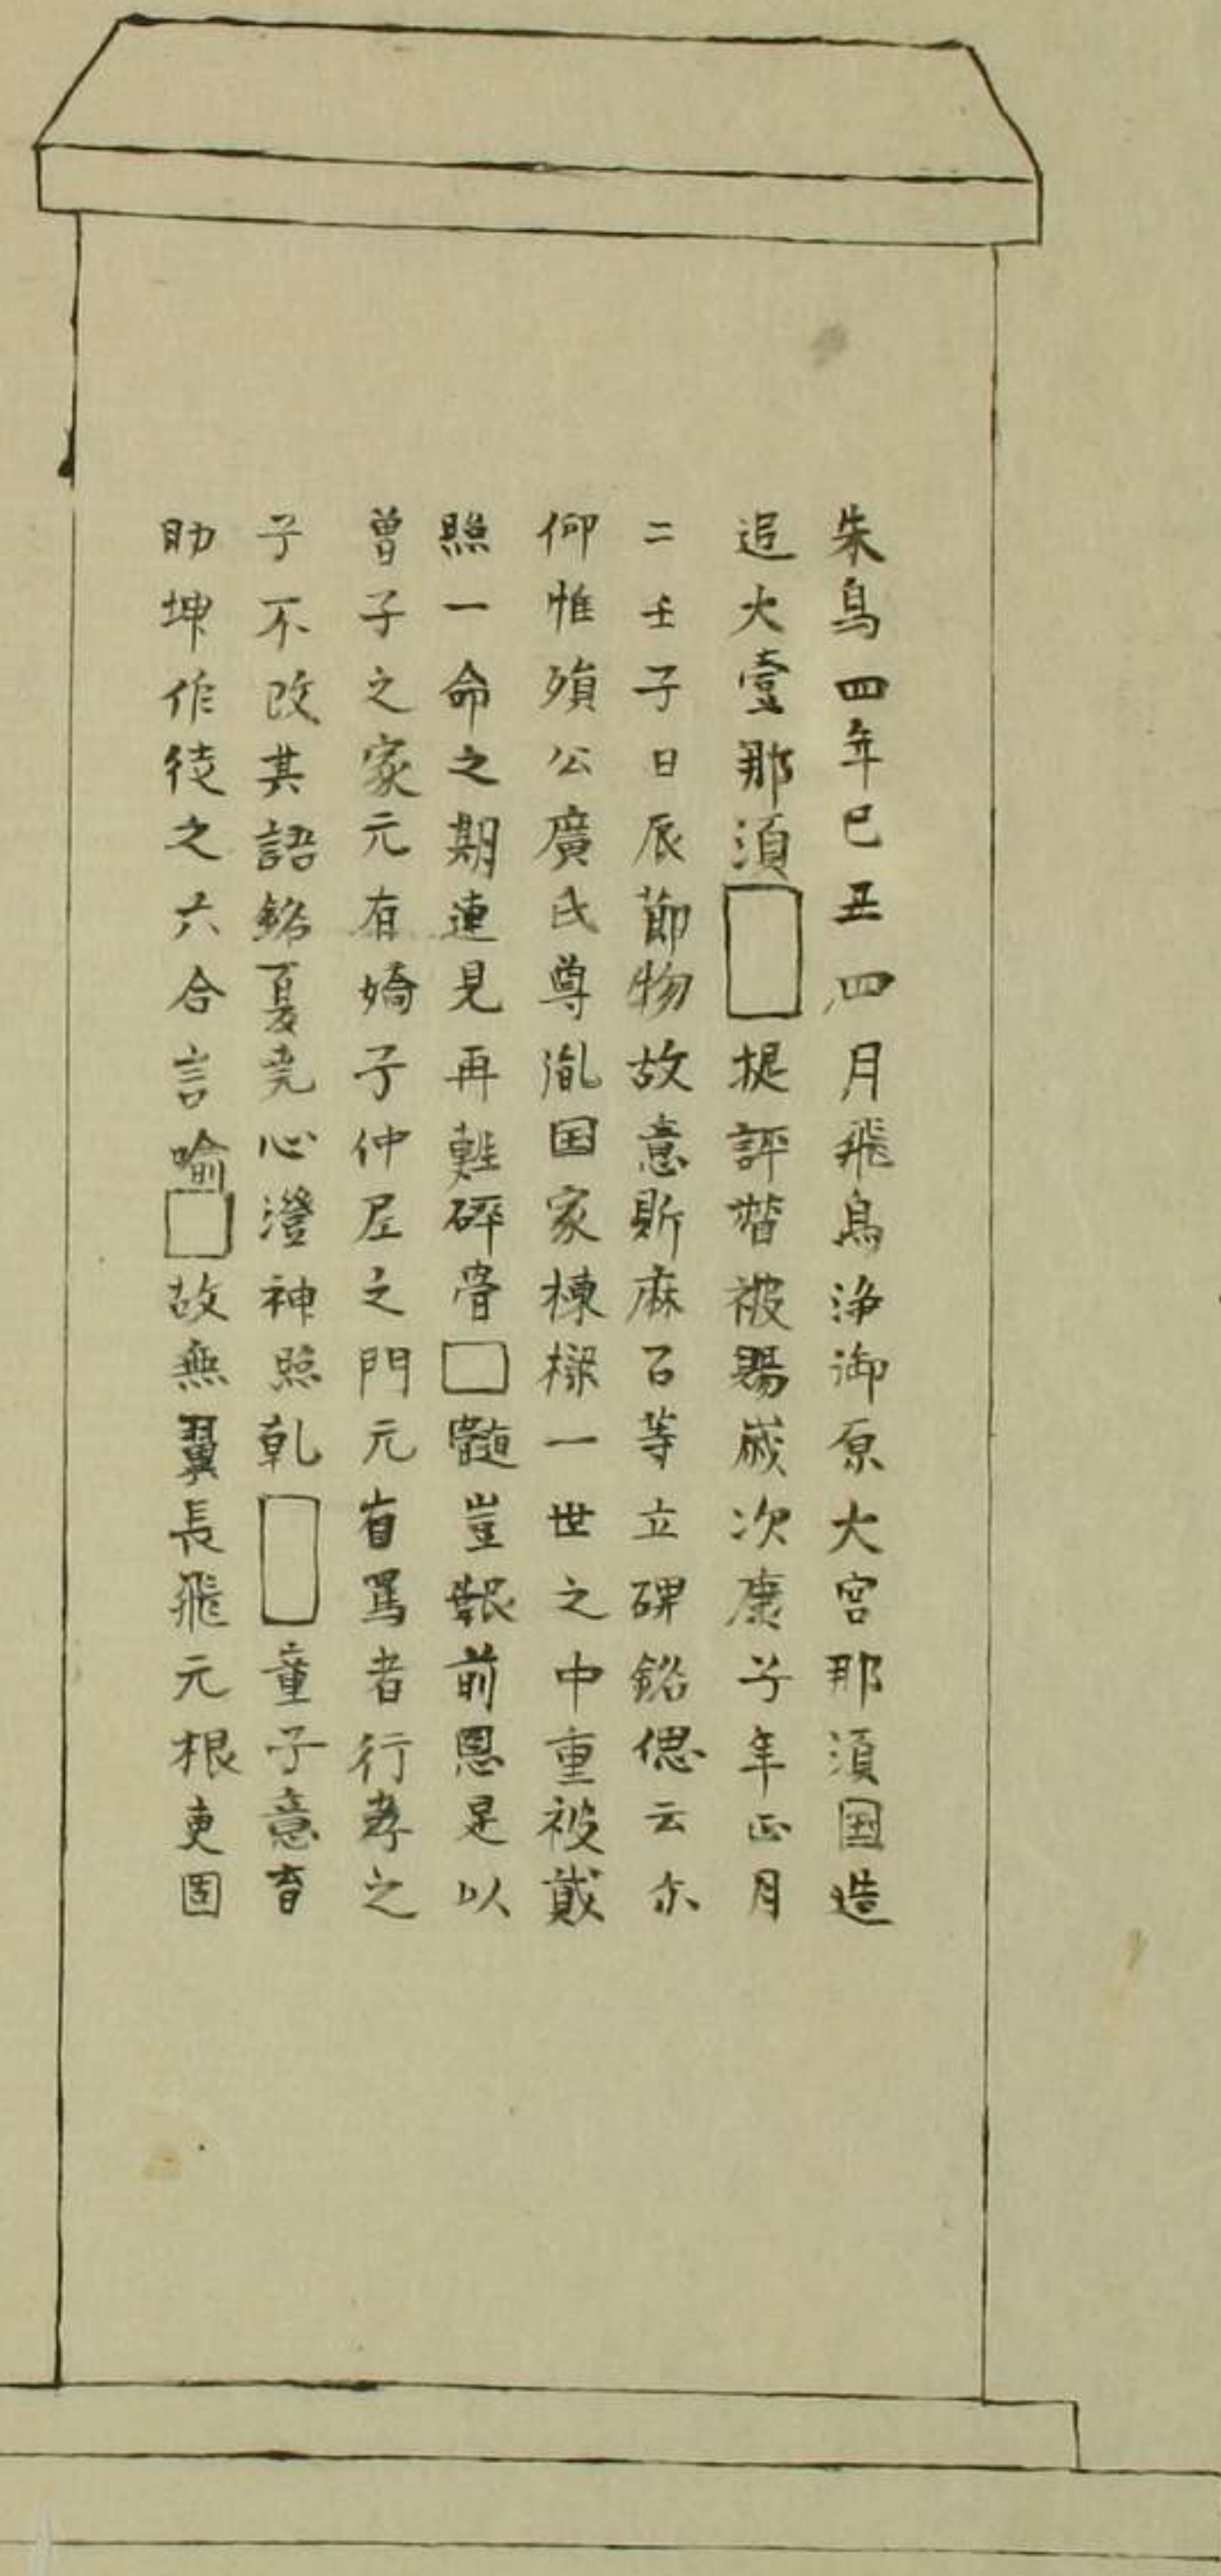 朱鳥四年巳丑四月飛鳥浄御原大宮那須国造
追大壹那須□提評督被賜歳次康子年正月
二壬子日辰節物故意斯麻呂等立碑銘偲云尓
仰惟殞公廣氏尊胤国家棟樑一世之中重被貳
照一命之期連見再甦砕骨□髄豈報前恩是以
曽子之家元有嬌子仲尼之門元有罵者行孝之
子不改其語銘夏尭心澄神照乾□童子意香
助坤作徒之六合言喩□故無翼長飛元根更固